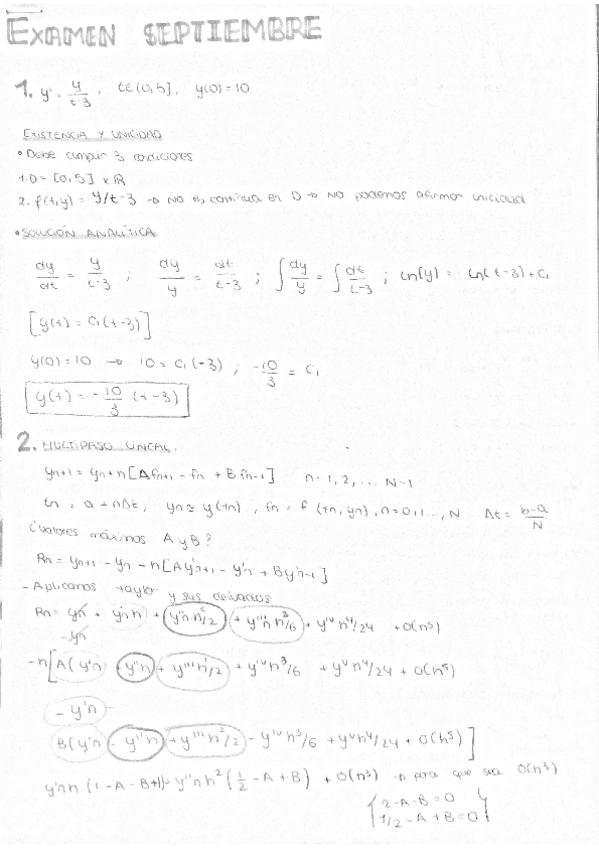 EXAMEN SEPTIEMBRE
1. y' = y/t-3, t∈(0,5], y(0)=10.
EXISTENCIA Y UNICIDAD
• Debe cumplir 3 condiciones
1. D = [0,5] x ℝ
2. f(t,y) = y/t-3 → No es continua en D → No podemos afirmar unicidad
• SOLUCIÓN ANALÍTICA
dy/dt = y/t-3 ; dy/y = dt/t-3 ; ∫ dy/y = ∫ dt/t-3 ; Ln(y) = Ln(t-3)+C₁
[y(t) = C₁(t-3)]
y(0)=10 → 10 = C₁(-3) ; -10/3 = C₁
y(t) = -10/3 (t-3)
2. MULTIPASO LINEAL.
yn+1 = yn + h[A fn+1 - fn + B fn-1] n=1,2,... N-1
tn = a + nΔt, yn ≃ y(tn), fn = f(tn,yn), n=0,1..., N Δt = b-a/N
¿Valores máximos A y B?
Rn = yn+1 - yn - h[Ay'n+1 - y'n + By'n-1]
- Aplicamos taylor y sus derivadas
Rn = yn + y'n h + y''n h²/2 + y'''n h³/6 + yIV h⁴/24 + O(h⁵)
-yn
-h[A(y'n + y''h + y'''h²/2 + yIV h³/6 + yV h⁴/24 + O(h⁵)
- y'n
B(y'n - y''h + y'''h²/2 - yIV h³/6 + yV h⁴/24 + O(h⁵)]
y'n h (1-A-B+1) + y''n h² (1/2 - A + B) + O(h³) → para que sea O(h³)
{2-A-B=0
1/2-A+B=0}